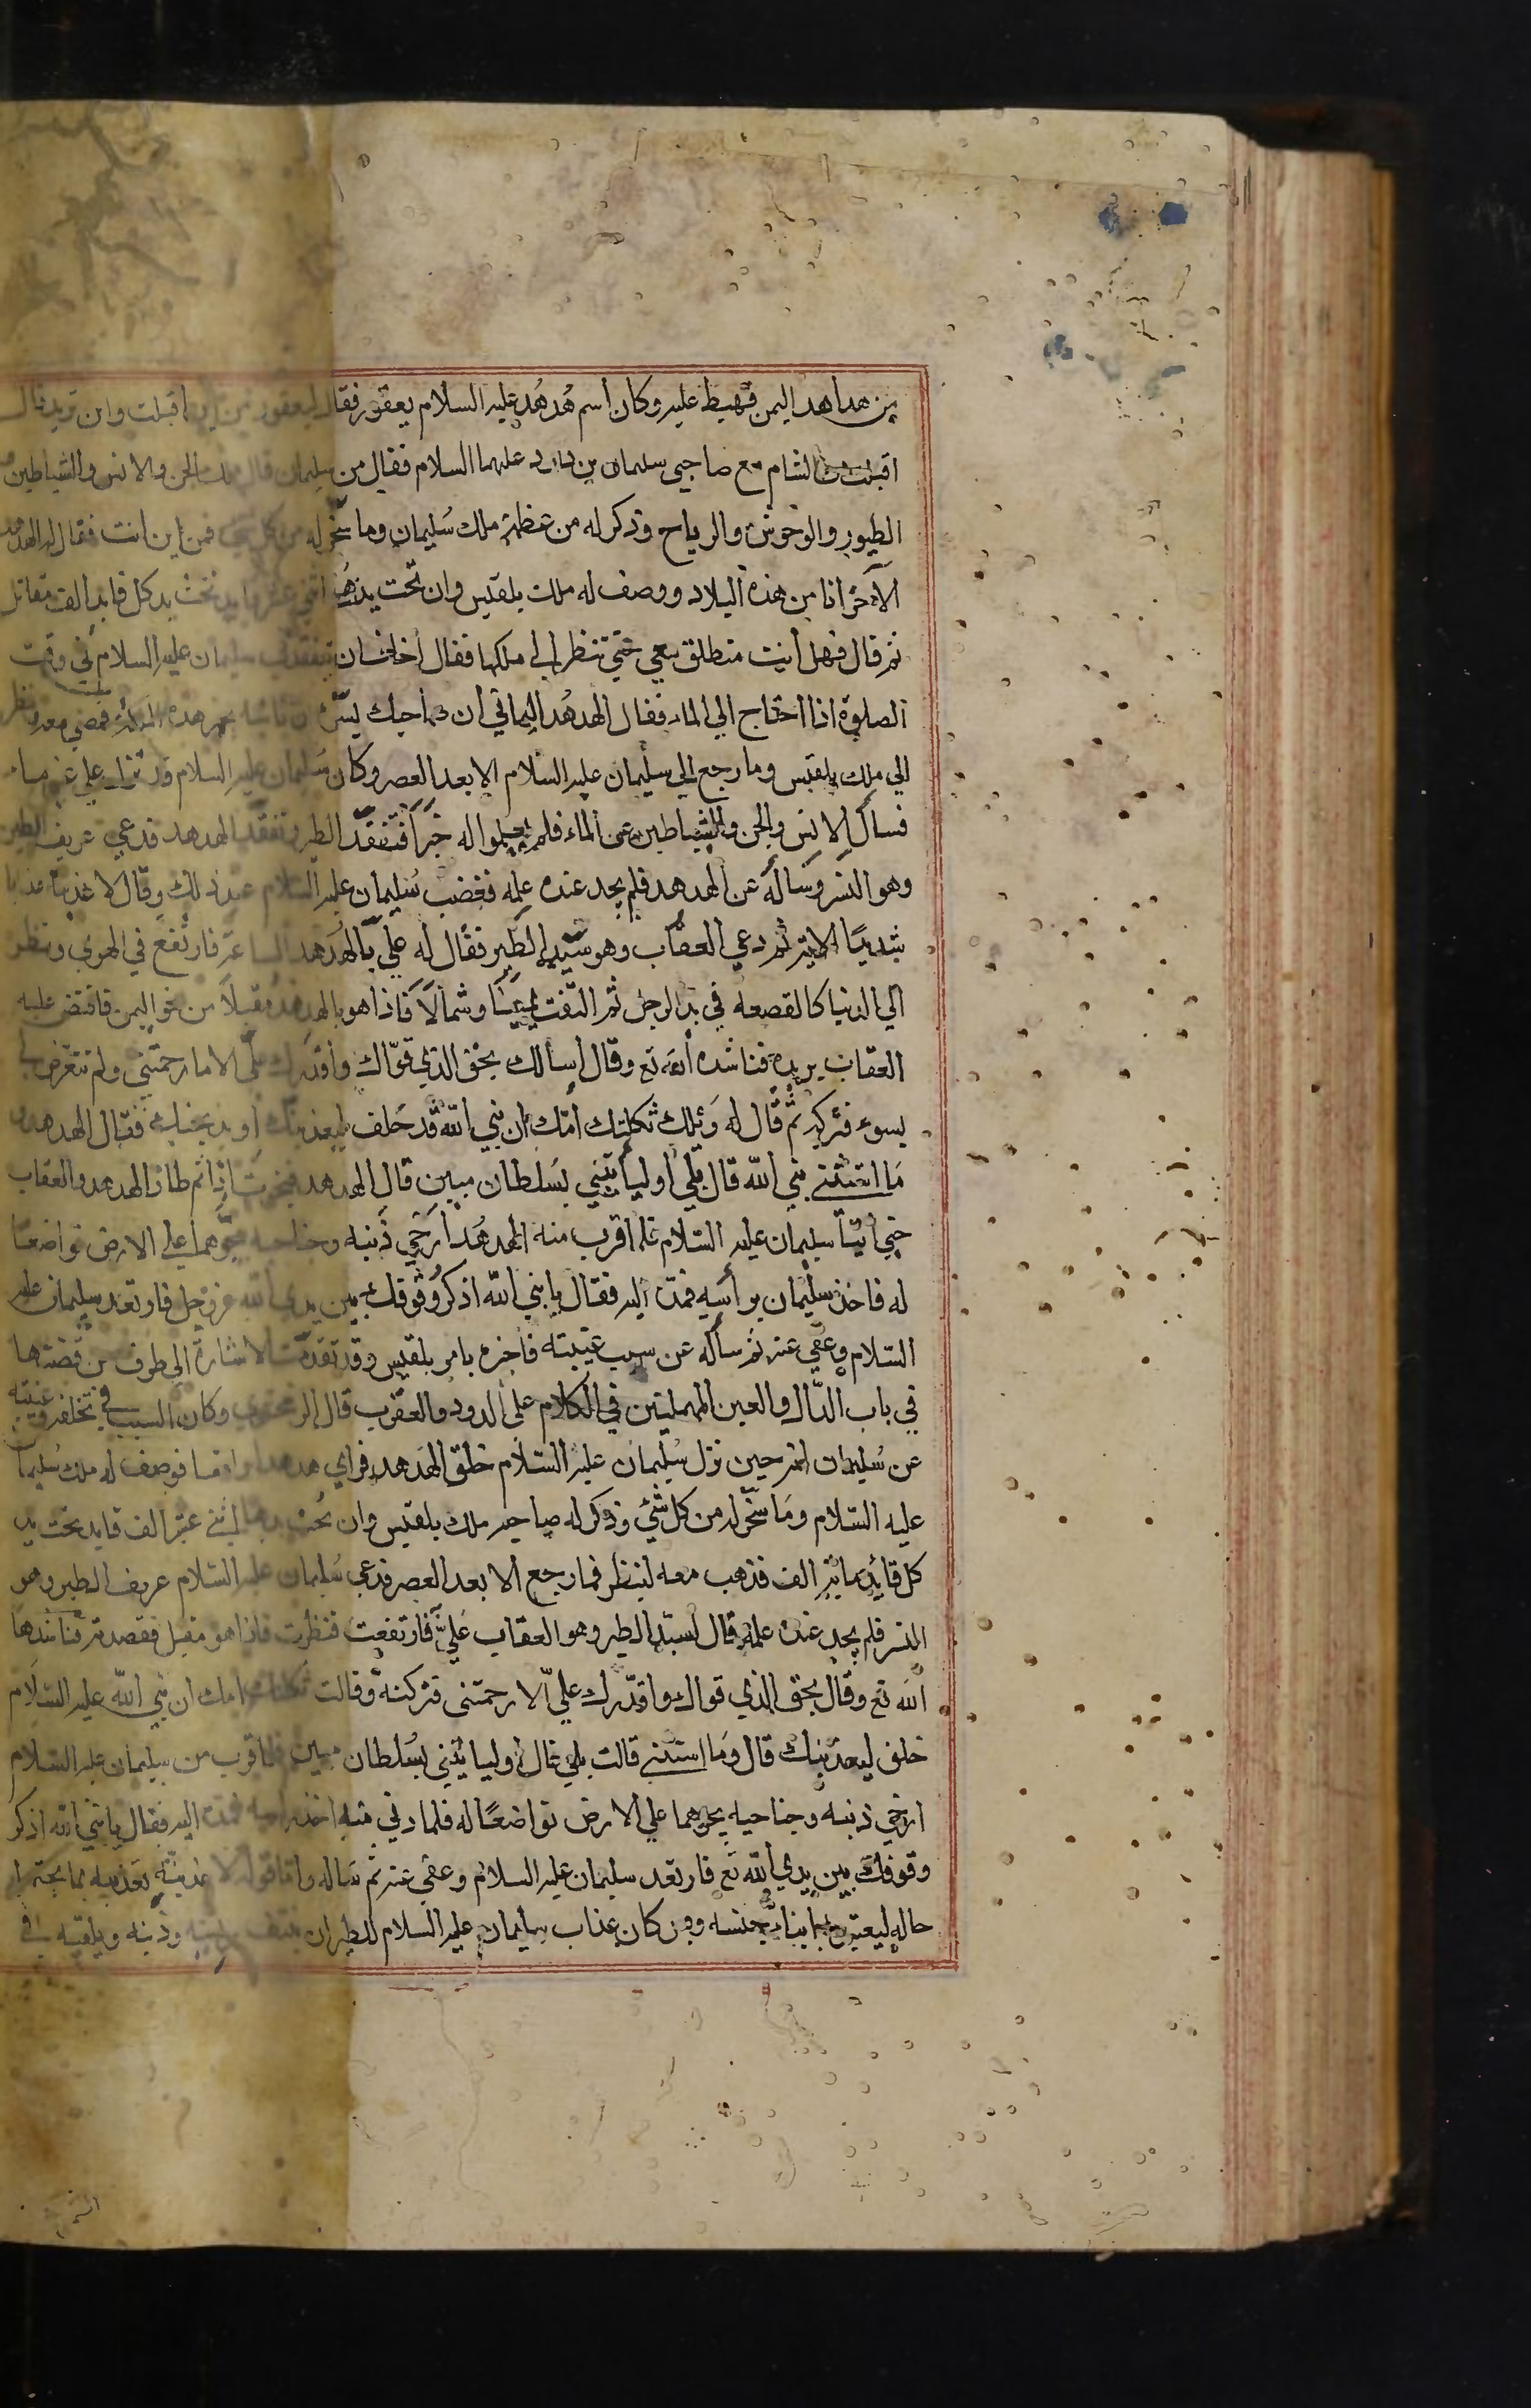 من هداهد اليمن فهبط عليه وكان اسم هُدهُد عليه السلام يعفور فقال ليعفور من اين اقبلت واين تريد قال
اقبلت من الشام مع صاحبي سليمان بن داود عليهما السلام فقال من سليمان قال ملك الجن والانس والشياطين
الطيور والوحوش والرياح وذكر له من عظمة ملك سُليمان وما سخّر له من كل شي فمن اين انت فقال له الهدهد
الآخر انا من هذه البلاد ووصف له ملك بلقيس وان تحت يدها اثني عشر تحت يد كل قايد الف مقاتل
ثم قال فهل أنت منطلق معي حتي تنظر الي ملكها فقال اخاف ان يتفقدني سليمان عليه السلام في وقت
الصلوة اذا احتاج الي الماء فقال الهدهُد اليماني ان صاحبك يسّره ان تاتيه بخبر هذه الملكة فمضي معه ونظر
الي ملك بلقيس وما رجع الي سليمان عليه السلام الا بعد العصر وكان سُليمان عليه السلام قد نزل علي غير ماء
فسأل الانس والجن والشياطين عن الماء فلم يعلموا له خبرًا فتفقّد الطير وتفقّد الهدهد فدعي عريف الطير
وهو النسر وساله عن الهدهد فلم يجد عنده علمه فغضب سُليمان عليه السلام عند ذلك وقال لاعذبنه عذابا
شديدًا الاية ثم دعي العقاب وهو سيد الطير فقال له عليّ بالهدهد الساعة فارتفع في الهوي ونظر
الي الدنيا كالقصعه في يد الرجل ثم التفت يمينًا وشمالًا فاذا هو بالهدهد مقبلًا من نحو اليمن فانقض عليه
العقاب يريده فناشده الله تع وقال اسالك بحق الذي قوّاك واقدرك عليّ الا ما رحمتني ولم تتعرض لي
بسوء فتركه ثم قال له وَيْلك ثكلتك امّك ان نبي الله قد حَلف ليعذبنّك او يذبحنك فقال الهدهد
مَا استثني نبي الله قال بلي اوليأتيني بسُلطان مبين قال الهدهد فنجوت اذا ثم طار الهدهد والعقاب
حتي أتيا سليمان عليه السلام فلما قرب منه الهدهُد أرخي ذَنبه وجناحيه يجرّهما علي الارض تواضعًا
له فاخذ سليمان براسه فمدّه اليه فقال يا نبي الله اذكر وقوفك بين يدي الله عز وجل فارتعد سليمان عليه
السلام وعفي عنه ثم سأله عن سبب غيبته فاخبره بامر بلقيس وقد تقدّمت الاشارة الي طرف من قصتها
في باب الدّال والعين المهملتين في الكلام علي الدود والعقرب قال الزمخشري وكان السبب في تخلفه وغيبته
عن سُليمان انه حين نزل سُليمان عليه السّلام حلق الهَدهد فراي هدهدا واقعا فوصف له ملك سُليمان
عليه السّلام ومَا سخّر له من كل شيً وذكر له صاحبه ملك بلقيس وان تحت يدها اثني عشر الف قايد تحت يد
كل قائد مائة الف فذهب معه لينظر فما رجع الا بعد العصر فدعي سُليمان عليه السّلام عريف الطير وهو
النسر فلم يجد عنده علمه قال لسيّد الطير وهو العقاب عَليّ به فارتفعت فنظرت فاذا هو مقبل فقصدته فناشدها
الله تع وقال بحق الذي قواك واقدرك عليّ الا رحمتني فتركته وقالت ثكلتك امك ان نبي الله عليه السّلام
حلف ليعذبنك قال ومَا استثني قالت بلي قال اوليأتيني بسُلطان مبين فلما قرب من سليمان عليه السلام
ارخي ذنبه وجناحيه يجرهما علي الارض تواضعًا له فلما دني منه اخذ براسه فمدّه اليه فقال يا نبي الله اذكر
وقوفك بين يدي الله تع فارتعد سليمان عليه السلام وعفي عنه ثم ساله واما قوله لاعذبنّه تعذيبه بما يحتمل
حاله ليعتبر به ابناء جنسه وقيل كان عذاب سليمان عليه السلام للطير ان ينتف ريشه وذنبه ويلقيه في